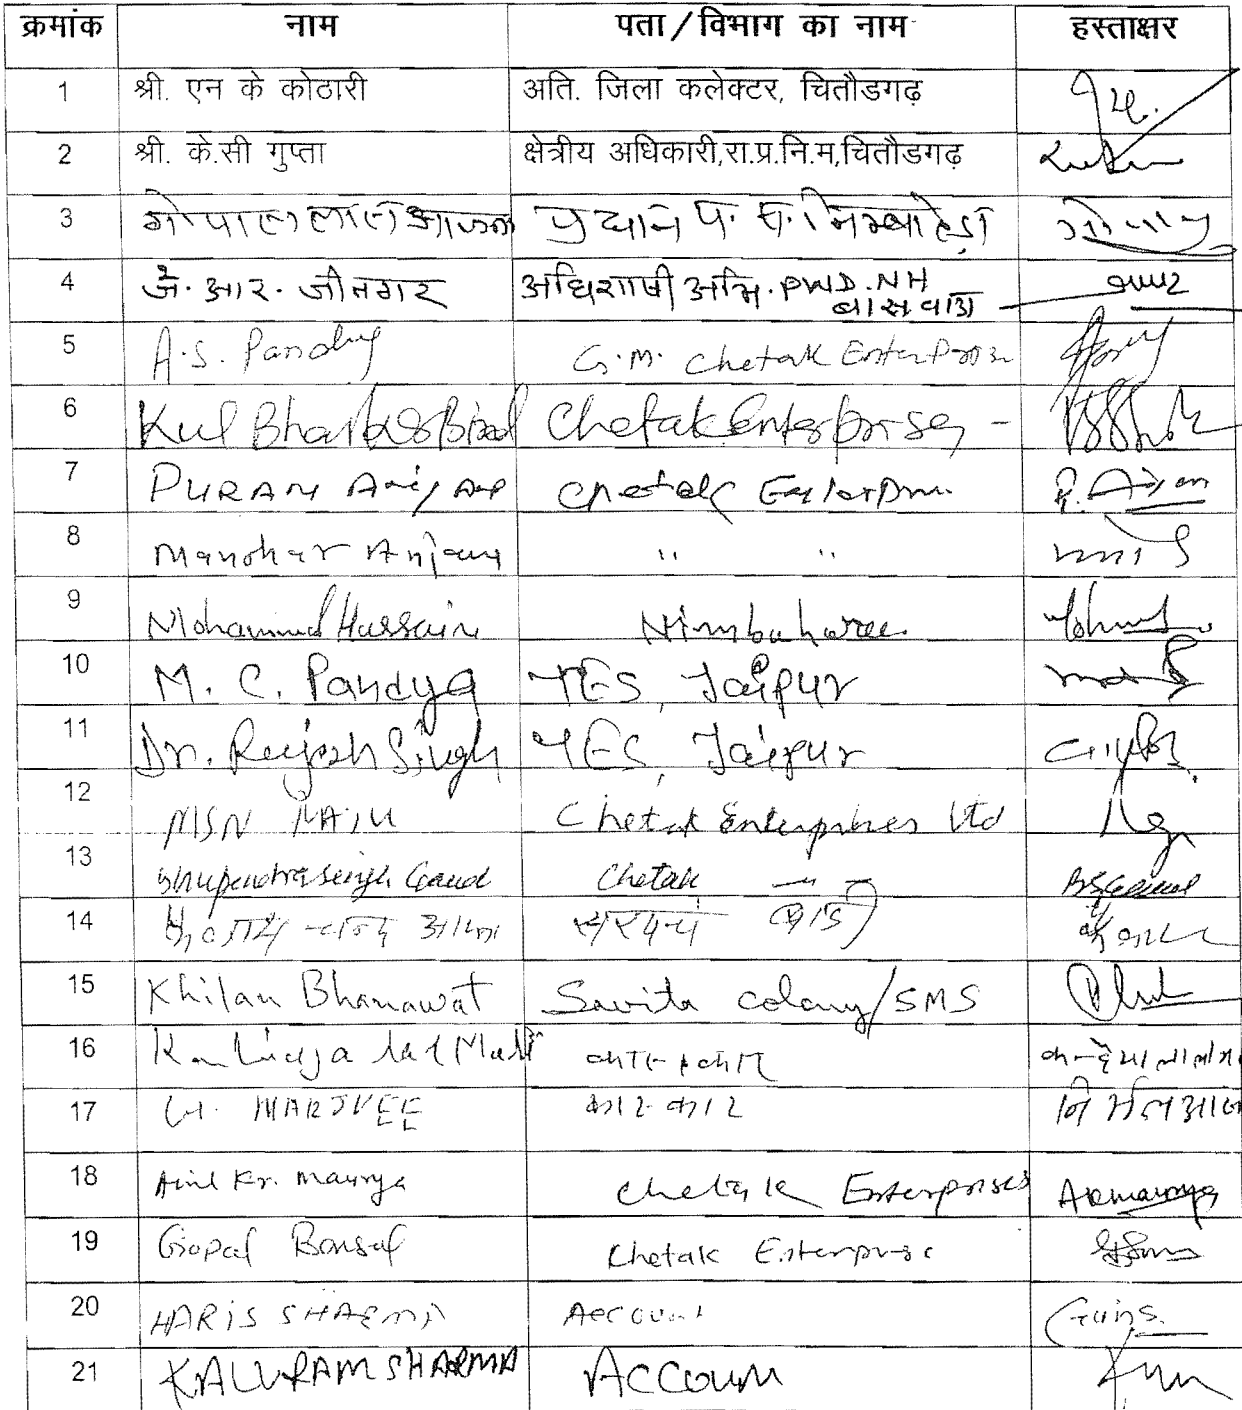 क्रमांक नाम पता/विभाग का नाम हस्ताक्षर
1 श्री. एन के कोठारी अति. जिला कलेक्टर, चितौडगढ़
2 श्री. के.सी गुप्ता क्षेत्रीय अधिकारी,रा.प्र.नि.म,चितौडगढ़
3 गोपाल लाल आजना प्रधान पं. स. निम्बाहेड़ा
4 जे. आर. जीनगर अधिशाषी अभि. PWD. NH
बासवाडा
5 A.S. Pandey G.M. Chetak Enterprise
6 Kul Chetak Enterprises -
7 PURAN Chetak Enterprise
8 Manohar Anjana " "
9 Mohammed Hussain
10 M. C. Pandya YES, Jaipur
11 Dr. Rajesh Singh YES, Jaipur
12 MSN RAJU Chetak Enterprises Ltd
13 Bhupendra Singh Gaud Chetak — —
14 सरपंच
15 Khilan Bhanawat Savita colony/SMS
16 Kanhiya lal Mali काश्तकार कन्हैयालाल
17
18 Anil Kr. Maurya Chetak Enterprises AKmaurya
19 Gopal Bansal Chetak Enterprise
20 HARIS SHARMA Account
21 KALURAM SHARMA Account